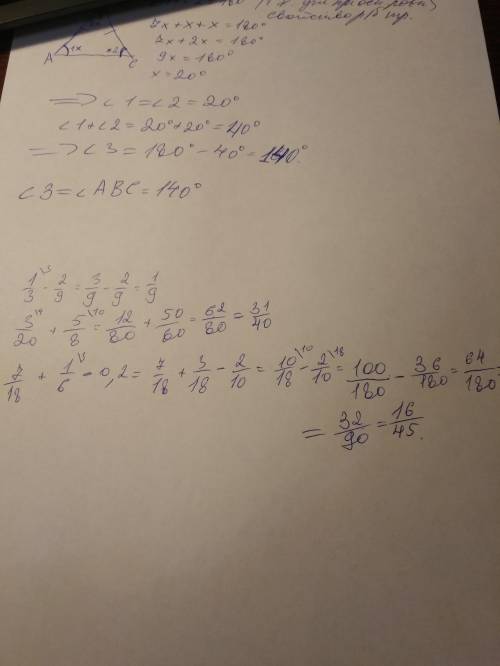 свойство р/б тр.
7x+x+x=180°
7x+2x=180°
9x=180°
x=20°
A 1x x2 C
=> ∠1=∠2=20°
∠1+∠2=20°+20°=40°
=> ∠3=180°-40°=140°.
∠3=∠ABC=140°
1/3 \3 - 2/9 = 3/9 - 2/9 = 1/9
3/20 \4 + 5/8 \10 = 12/80 + 50/80 = 62/80 = 31/40
7/18 + 1/6 \3 - 0,2 = 7/18 + 3/18 - 2/10 = 10/18 \10 - 2/10 \18 = 100/180 - 36/180 = 64/180 =
= 32/90 = 16/45.